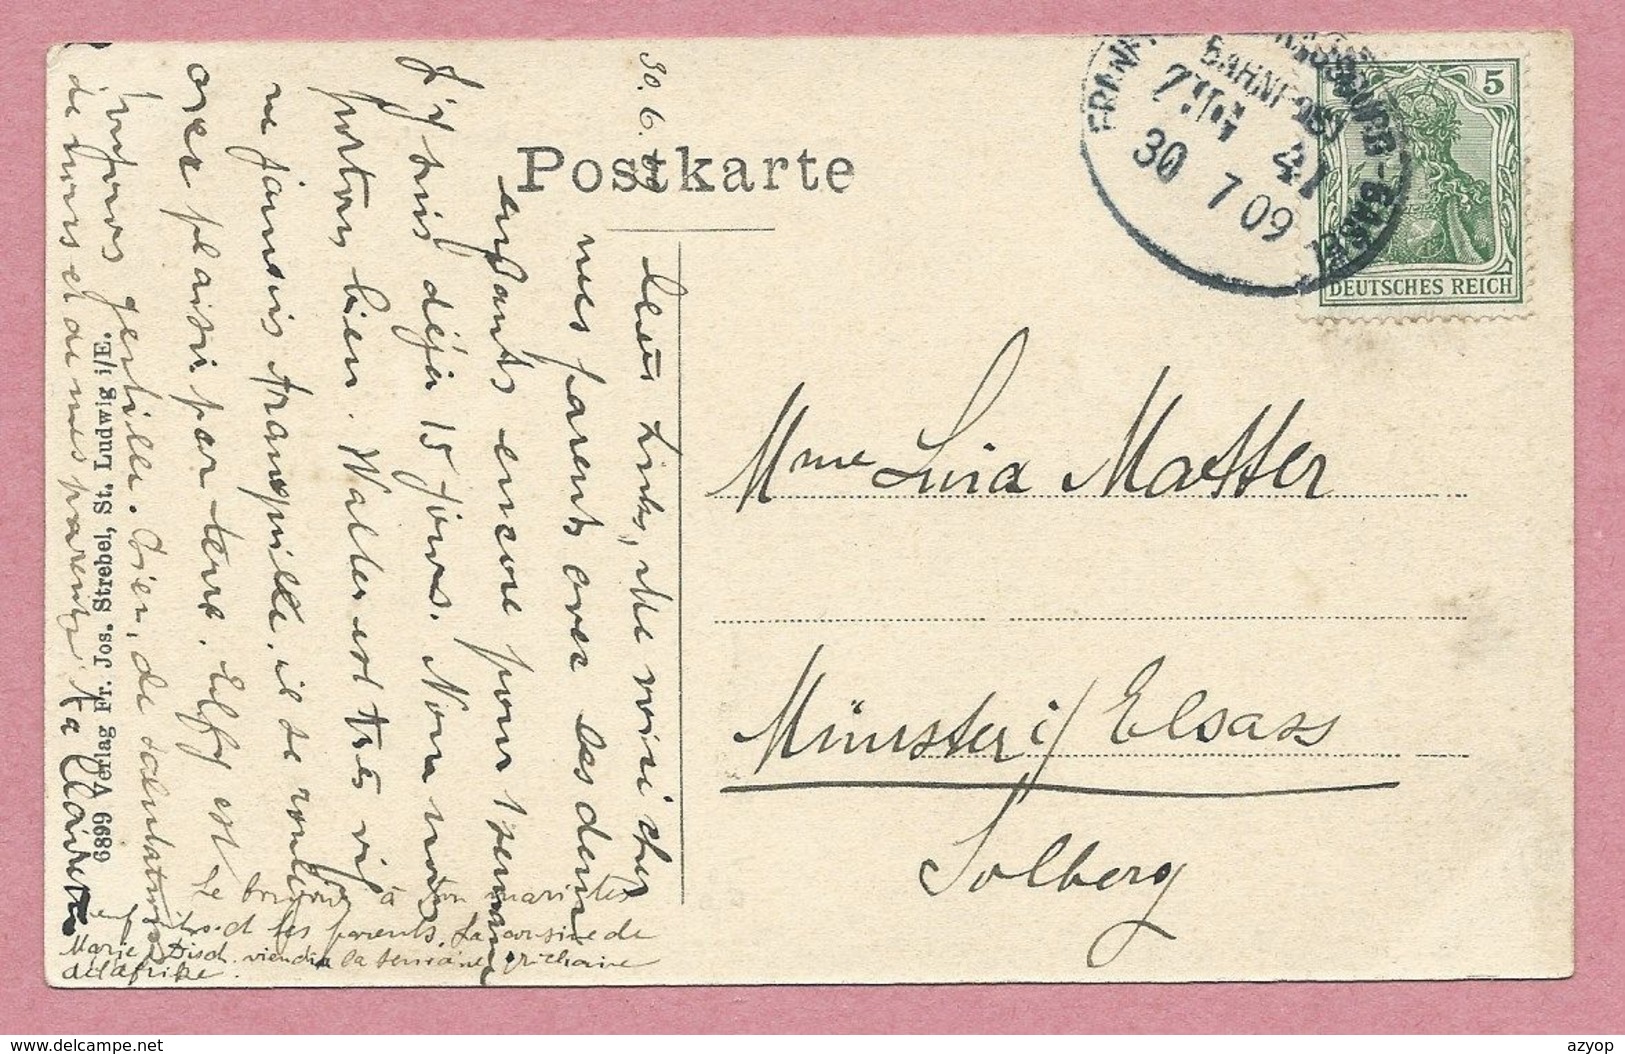 Postkarte
BAHNPOST
ZUG 41
30 7 09
5
DEUTSCHES REICH
30. 6.
Me voici chez
mes parents avec les deux
enfants encore pour 1 semaine
J'y suis déjà 15 jours. Nous nous
portons bien. Walter est très vif
ne jamais tranquille, il se roule
avec plaisir par terre. Elsy est
toujours gentille. Bien de salutations
de nous et de mes parents. Ta Clairette
Le bonjour à ton mari tes
et tes parents. La cousine de
Marie Disch viendra la semaine prochaine
d'Afrike.
6899 Verlag Fr. Jos. Strebel, St. Ludwig i/E.
Mme Luia Matter
Münster i/ Elsass
Solberg
delcampe.net
azyop